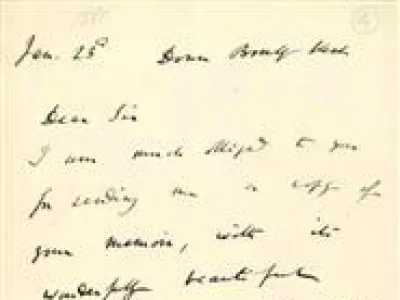 Jan. 23ᵈ Down Bromley Kent
Dear Sir
I am much obliged to you
for sending me a copy of
your memoir, with its
wonderfully beautiful